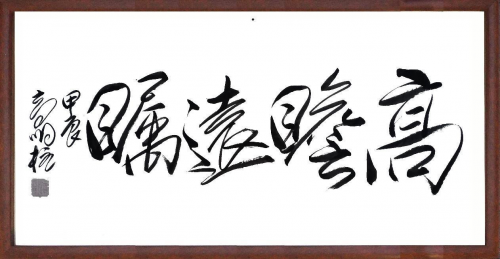 高瞻遠矚
甲辰